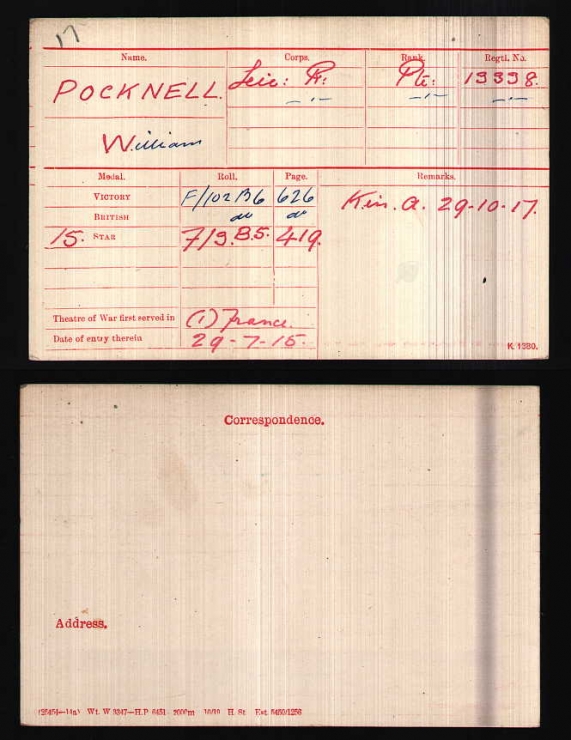 17
Name. Corps. Rank. Regtl. No.
POCKNELL. Leic: R: Pte: 13338.
William — " — — " — — " —
Medal. Roll. Page. Remarks.
VICTORY F/102B6 626 Kin. a. 29-10-17.
BRITISH do do
15. STAR 7/3.B.5. 419.
Theatre of War first served in (1) France.
Date of entry therein 29-7-15.
K. 1380.
Correspondence.
Address.
Wt. W 3347—H.P. H. St.